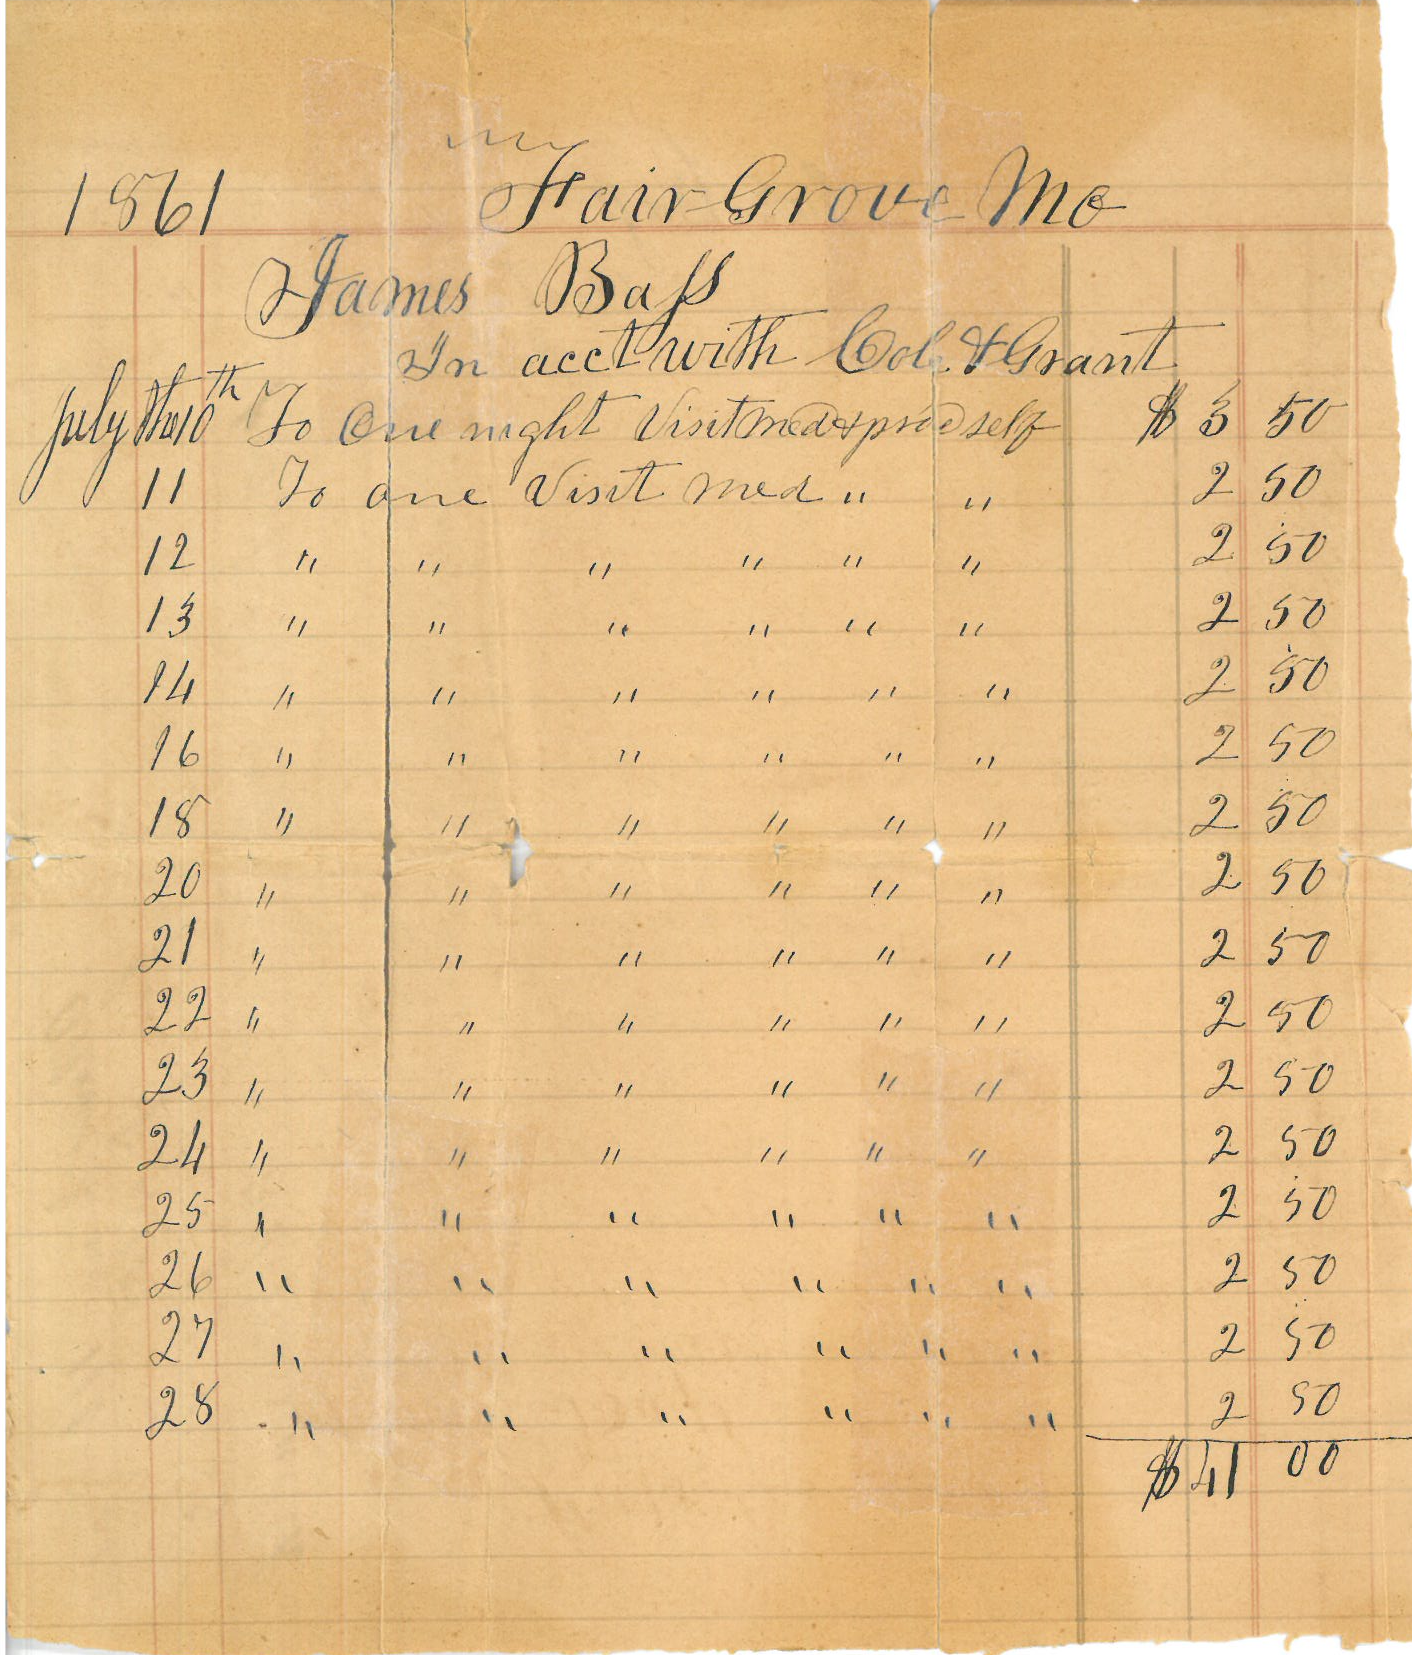 1861 Fair Grove Mo
James Bass
In acct with Col. & Grant
July the 10th To One night Visit med & pred self $ 3 50
11 To one Visit med " " 2 50
12 " " " " " " 2 50
13 " " " " " " 2 50
14 " " " " " " 2 50
16 " " " " " " 2 50
18 " " " " " " 2 50
20 " " " " " " 2 50
21 " " " " " " 2 50
22 " " " " " " 2 50
23 " " " " " " 2 50
24 " " " " " " 2 50
25 " " " " " " 2 50
26 " " " " " " 2 50
27 " " " " " " 2 50
28 " " " " " " 2 50
$ 41 00